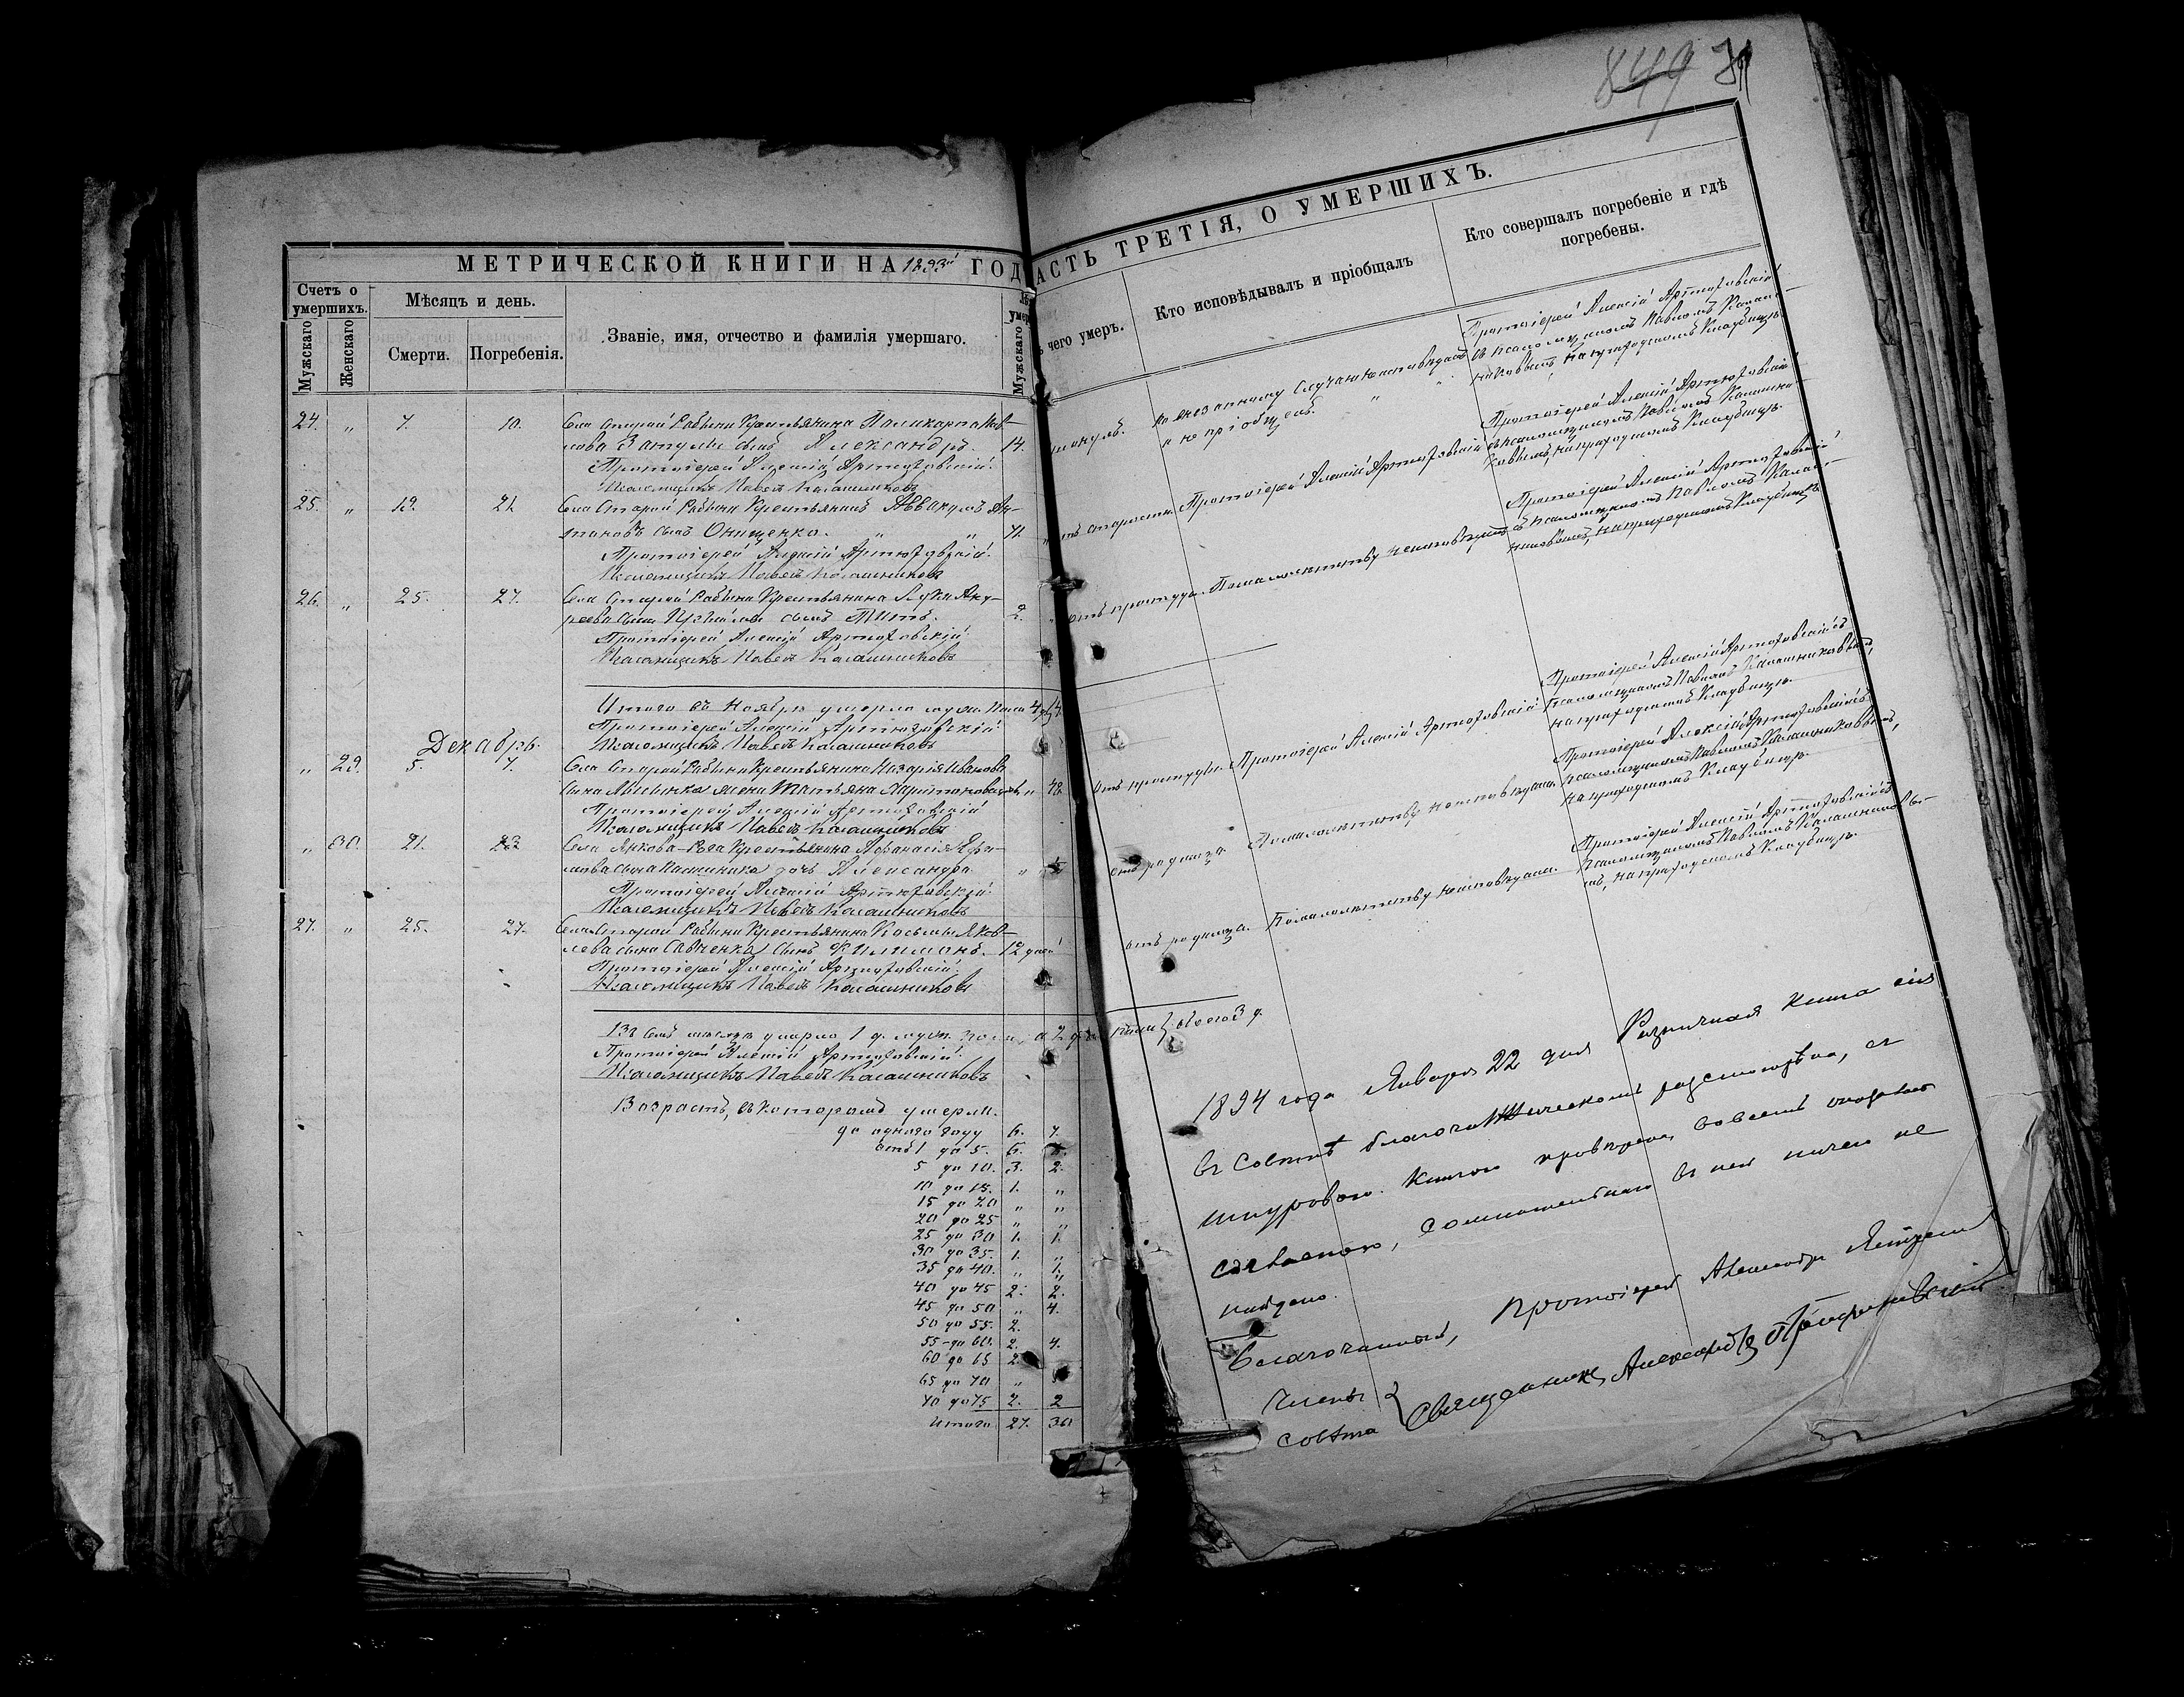 849
МЕТРИЧЕСКОЙ КНИГИ НА 1893й ГОД
Счетъ о умершихъ.
Мѣсяцъ и день.
Званіе, имя, отчество и фамилія умершаго.
Мужскаго
Женскаго
Смерти.
Погребенія.
Мужскаго
24. " 7. 10. Села Старой Рябины Крестьянина Поликарпа
сынъ Александръ. 14.
Протоіерей Алексій Артюховскій.
Псаломщикъ Павелъ Калашниковъ
25. " 19. 21. Села Старой Рябины Крестьянинъ Аввакумъ Ан-
тоновъ сынъ Онищенко. " " 71.
Протоіерей Алексій Артюховскій.
Псаломщикъ Павелъ Калашниковъ
26. " 25. 27. Села Старой Рябины Крестьянина Луки Анд-
реева сына сынъ Титъ. 2.
Протоіерей Алексій Артюховскій.
Псаломщикъ Павелъ Калашниковъ
Итого въ Ноябрѣ умерло муж. пола 4
Протоіерей Алексій Артюховскій.
Псаломщикъ Павелъ Калашниковъ
Декабрь.
" 29. 5. 7. Села Старой Рябины Крестьянина Назарія Иванова
сына жена Татьяна Харитонова
Протоіерей Алексій Артюховскій
Псаломщикъ Павелъ Калашниковъ
" 30. 21. 23 Села Янкова-Рога Крестьянина Афанасія Ефи-
мова сына дочь Александра
Протоіерей Алексій Артюховскій.
Псаломщикъ Павелъ Калашниковъ
27. " 25. 27. Села Старой Рябины Крестьянина Косьмы Яков-
лева сына Савченка сынъ Филимонъ. 12 дней
Протоіерей Алексій Артюховскій.
Псаломщикъ Павелъ Калашниковъ
Въ семъ мѣсяцѣ умерло 1 д. муж. пола, а 2 д. жен. пола } обоего 3 д.
Протоіерей Алексій Артюховскій.
Псаломщикъ Павелъ Калашниковъ
Возрастъ, въ которомъ умерли.
до одного году 6. 7.
отъ 1 до 5. 6.
5 до 10. 3. 2.
10 до 15. 1. "
15 до 20 " "
20 до 25 " "
25 до 30 1. 1.
30 до 35. 1. "
35 до 40. " 1.
40 до 45 2. 2.
45 до 50 " 4.
50 до 55. 2.
55 до 60. 2. 4.
60 до 65 2.
65 до 70 "
70 до 75 2. 2
Итого 27. 30
АСТЬ ТРЕТІЯ, О УМЕРШИХЪ.
чего умеръ.
Кто исповѣдывалъ и пріобщалъ
Кто совершалъ погребеніе и гдѣ погребены.
По внезапному случаю неисповѣданъ
и не пріобщенъ.
Протоіерей Алексій Артюховскій
съ псаломщикомъ Павломъ Калаш-
никовымъ, на приходскомъ кладбищѣ.
отъ старости Протоіерей Алексій Артюховскій
Протоіерей Алексій Артюховскій
съ псаломщикомъ Павломъ Калашни-
ковымъ, на приходскомъ кладбищѣ.
отъ простуды. По малолѣтству неисповѣданъ
Протоіерей Алексій Артюховскій
съ псаломщикомъ Павломъ Калаш-
никовымъ, на приходскомъ кладбищѣ
отъ простуды. Протоіерей Алексій Артюховскій
Протоіерей Алексій Артюховскій съ
псаломщикомъ Павломъ Калашниковымъ,
на приходскомъ кладбищѣ.
отъ родимца. По малолѣтству неисповѣдана.
Протоіерей Алексій Артюховскій съ
псаломщикомъ Павломъ Калашниковымъ,
на приходскомъ кладбищѣ.
отъ родимца. По малолѣтству неисповѣдана.
Протоіерей Алексій Артюховскій съ
псаломщикомъ Павломъ Калашниковы-
мъ, на приходскомъ кладбищѣ.
1894 года Января 22 дня книга сія
въ Совѣтѣ благочинническомъ разсмотрѣна, съ
шнуровою книгою провѣрена, во всемъ оказалась
согласною, сомнительнаго въ ней ничего не
найдено.
Благочинный, Протоіерей Александръ
Члены Совѣта { Священникъ Александръ